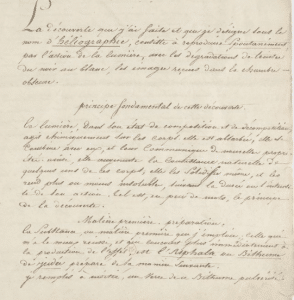 La découverte que j'ai faite et que je désigne sous le
nom d'héliographie, consiste à reproduire spontanément,
par l'action de la lumière, avec les dégradations de teintes
du noir au blanc, les images reçues dans la chambre
obscure.
principe fondamental de cette découverte.
La lumière, dans son état de composition et de décomposition
agit chimiquement sur les corps. elle est absorbée, elle se
combine avec eux, et leur communique de nouvelles propriétés
ainsi, elle augmente la consistance naturelle de
quelques uns de ces corps, elle les solidifie même, et les
rend plus ou moins insolubles, suivant la durée ou l'intensité
de son action. tel est, en peu de mots, le principe
de la découverte.
Matière première. préparation.
La substance ou matière première que j'emploie, celle qui
m'a le mieux réussi, et qui concourt plus immédiatement à
la production de l'effet, est l'Asphalte ou Bitume
de Judée préparé de la manière suivante.
je remplis à moitié, un verre de ce Bitume pulvérisé